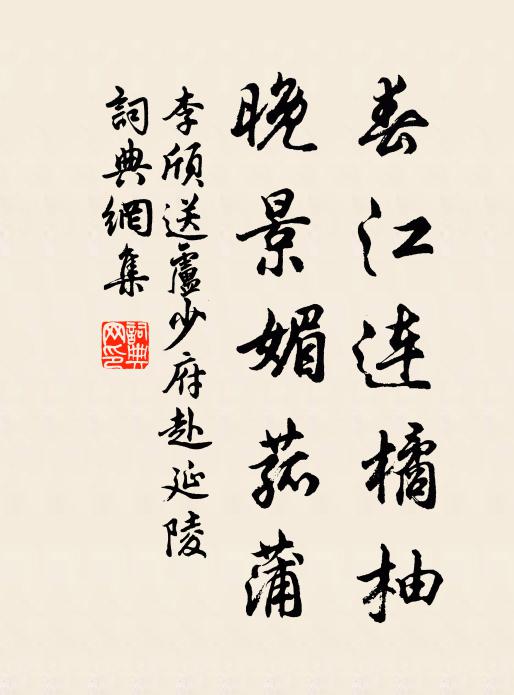 春江连橘柚
晚景媚菰蒲
李頎送盧少府赴延陵
詞典網集
詞典网印